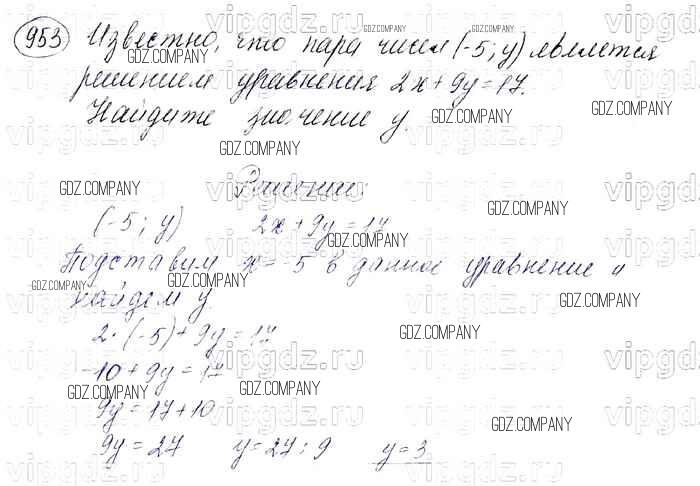 953 Известно, что пара чисел (-5; y) является
решением уравнения 2x + 9y = 17.
Найдите значение y.
Решение:
(-5; y) 2x + 9y = 17
Подставим x = -5 в данное уравнение и
найдем y
2·(-5) + 9y = 17
-10 + 9y = 17
9y = 17 + 10
9y = 27 y = 27 : 9 y = 3
vipgdz.ru
GDZ.COMPANY